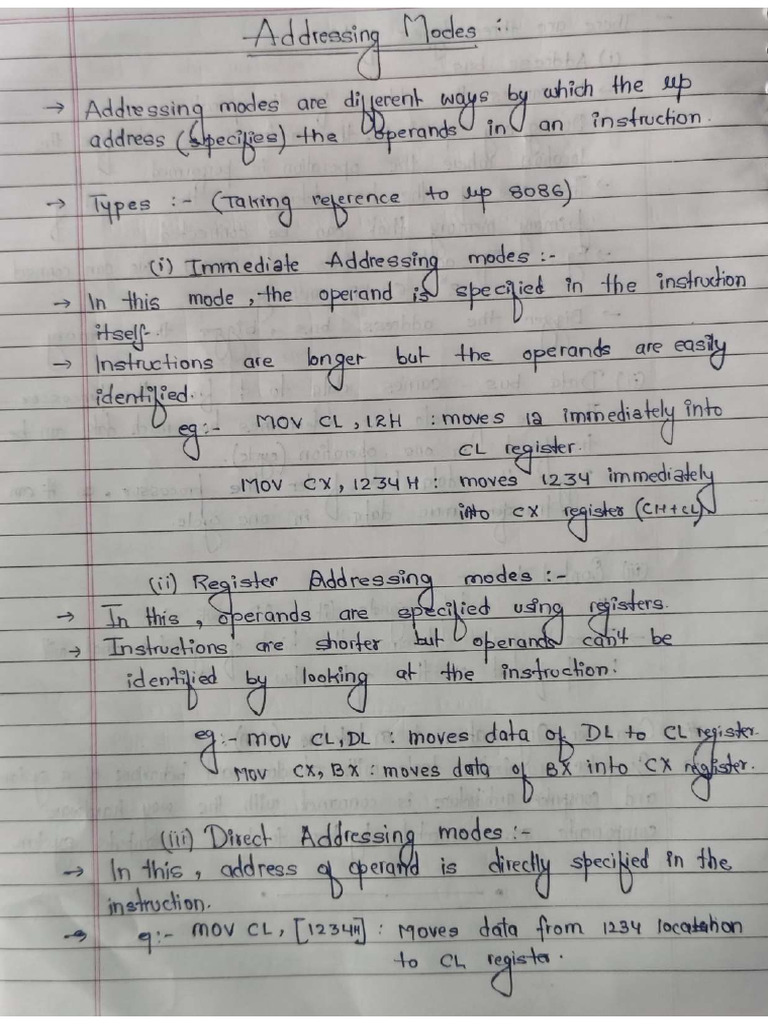 Addressing Modes :-
→ Addressing modes are different ways by which the up
address (specifies) the operands in an instruction.
→ Types :- (Taking reference to up 8086)
(i) Immediate Addressing modes :-
→ In this mode, the operand is specified in the instruction
itself.
→ Instructions are longer but the operands are easily
identified.
eg:- MOV CL, 12H : moves 12 immediately into
CL register.
MOV CX, 1234 H : moves 1234 immediately
into CX register (CH+CL)
(ii) Register Addressing modes :-
→ In this, operands are specified using registers.
→ Instructions are shorter but operands can't be
identified by looking at the instruction.
eg:- MOV CL, DL : moves data of DL to CL register.
MOV CX, BX : moves data of BX into CX register.
(iii) Direct Addressing modes :-
→ In this, address of operand is directly specified in the
instruction.
→ q:- MOV CL, [1234H] : Moves data from 1234 location
to CL register.